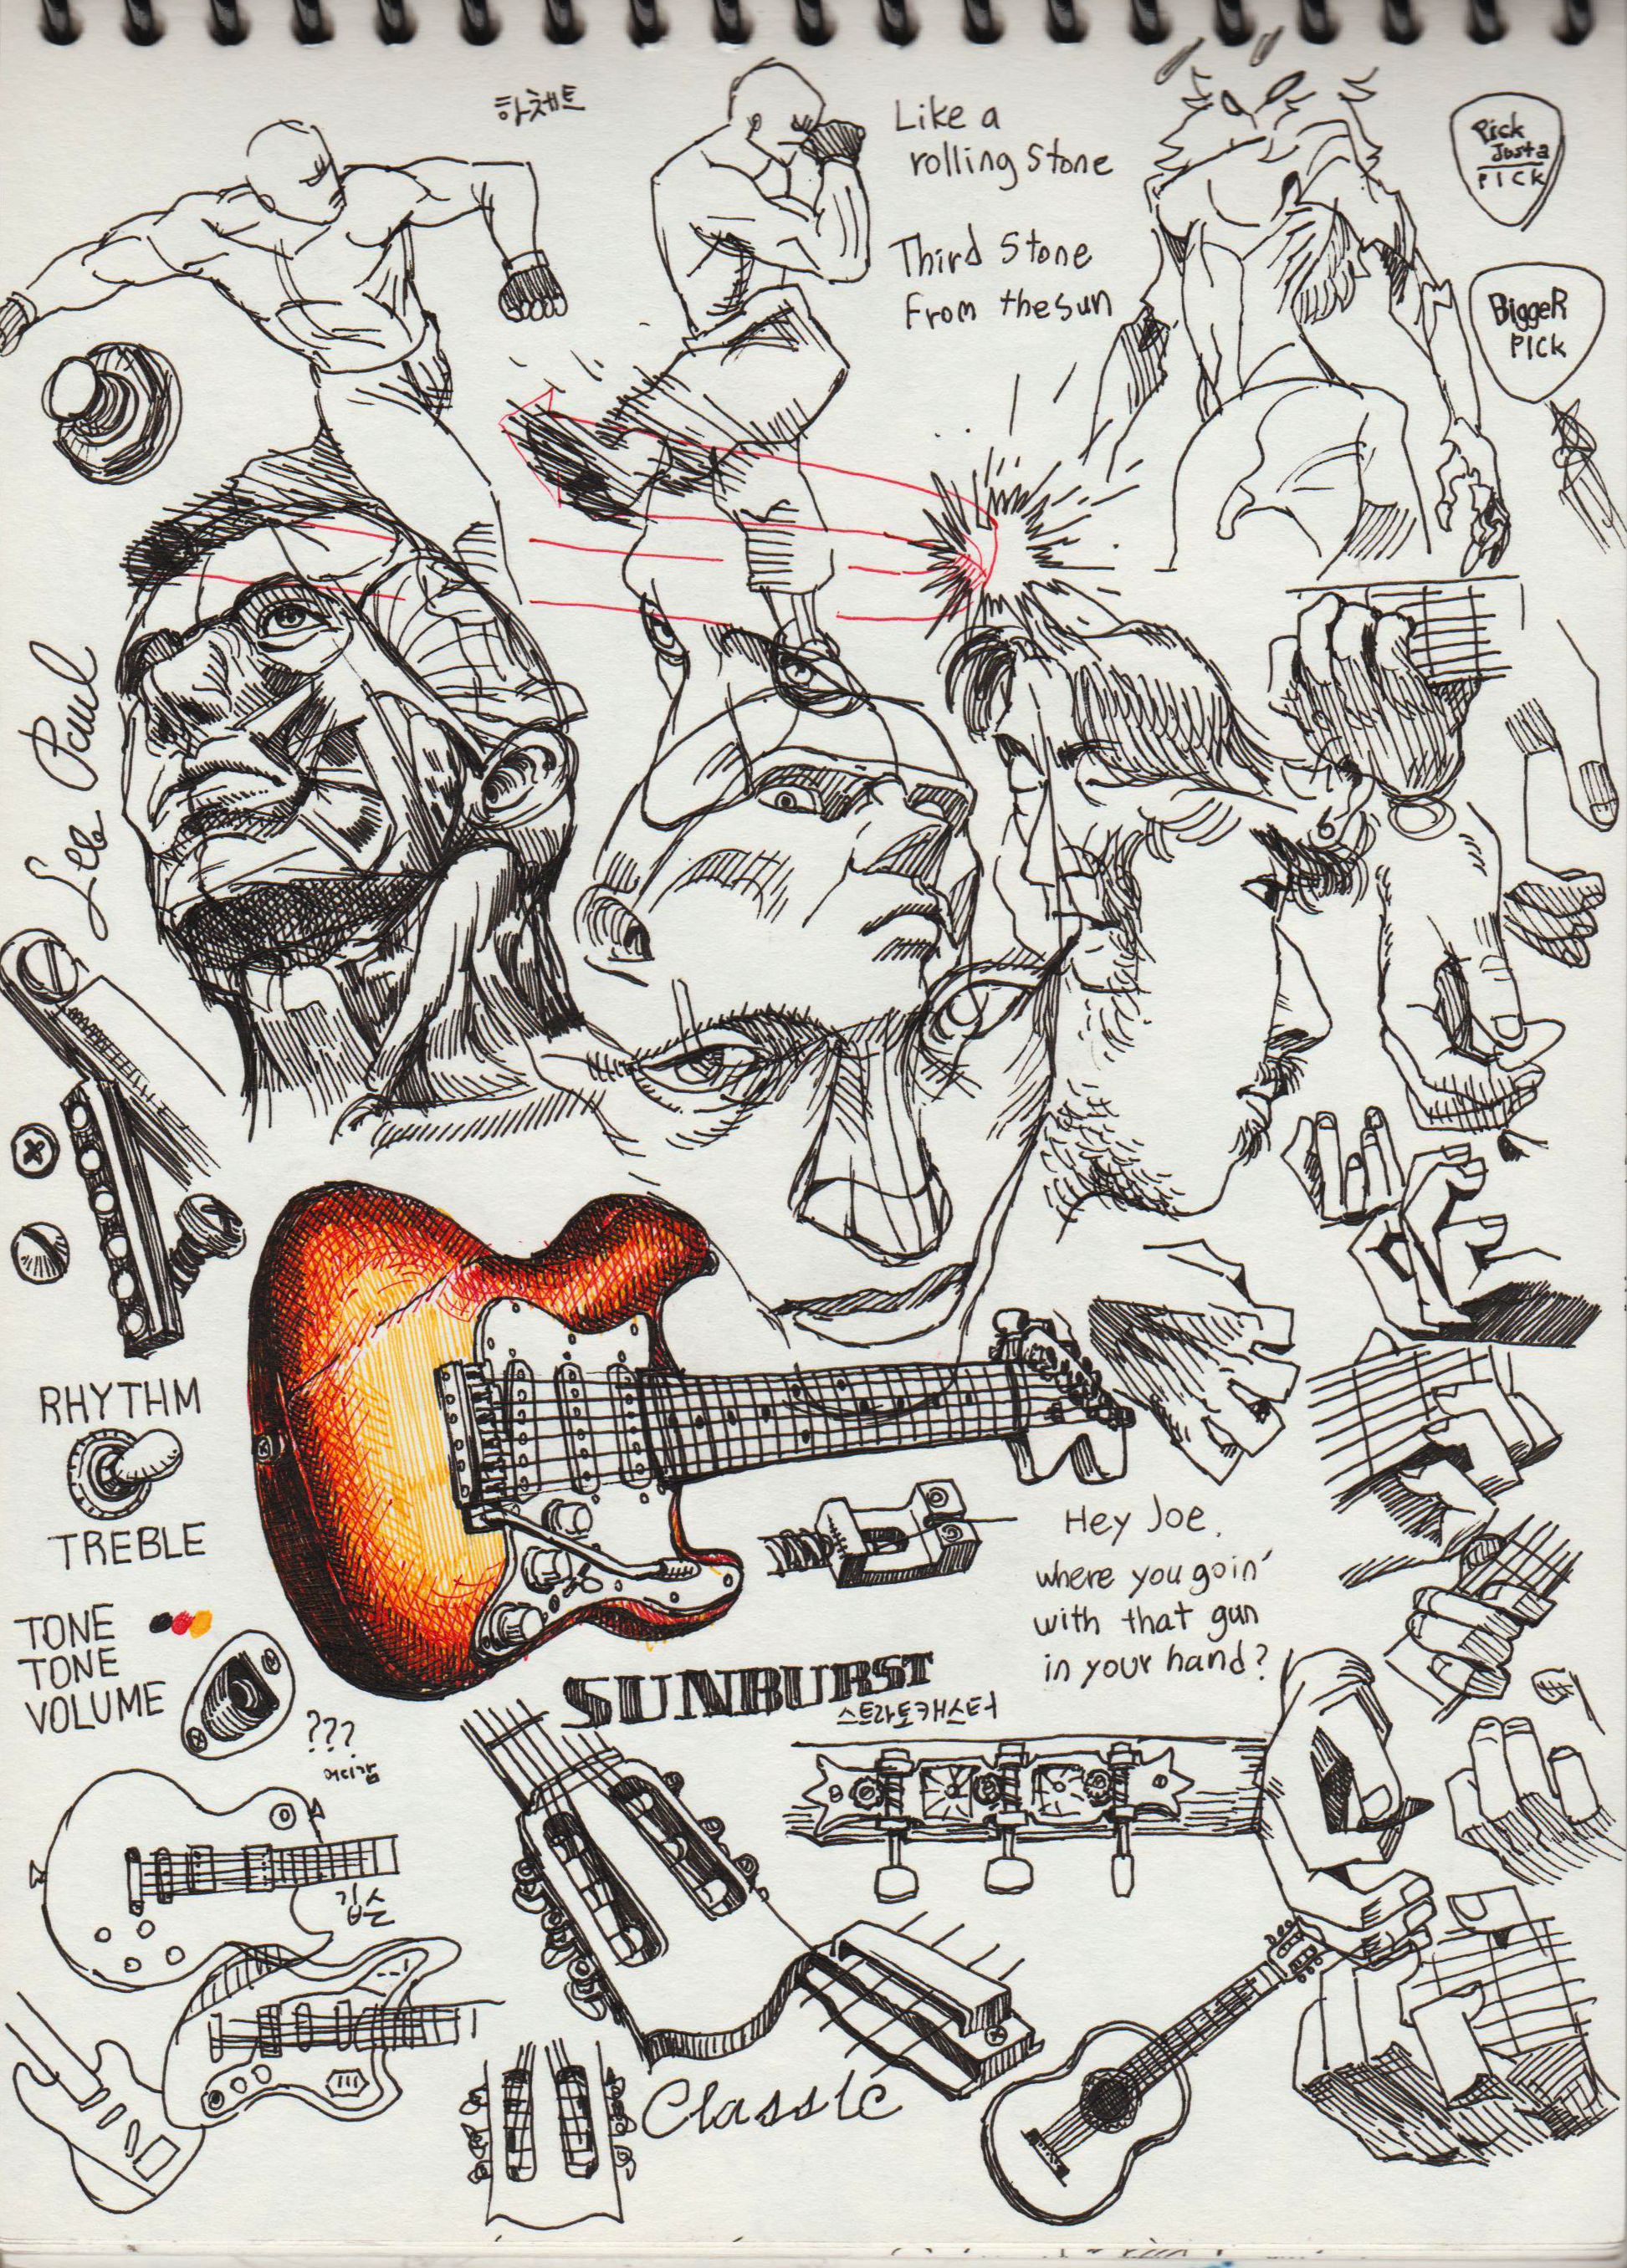 하체트
Like a
rolling Stone
Third Stone
From the sun
Pick
Just a
PICK
BiggeR
PICK
Les Paul
RHYTHM
TREBLE
TONE
TONE
VOLUME
???
어디감
Hey Joe,
where you goin'
with that gun
in your hand?
SUNBURST
스트라토캐스터
깁슨
Classic